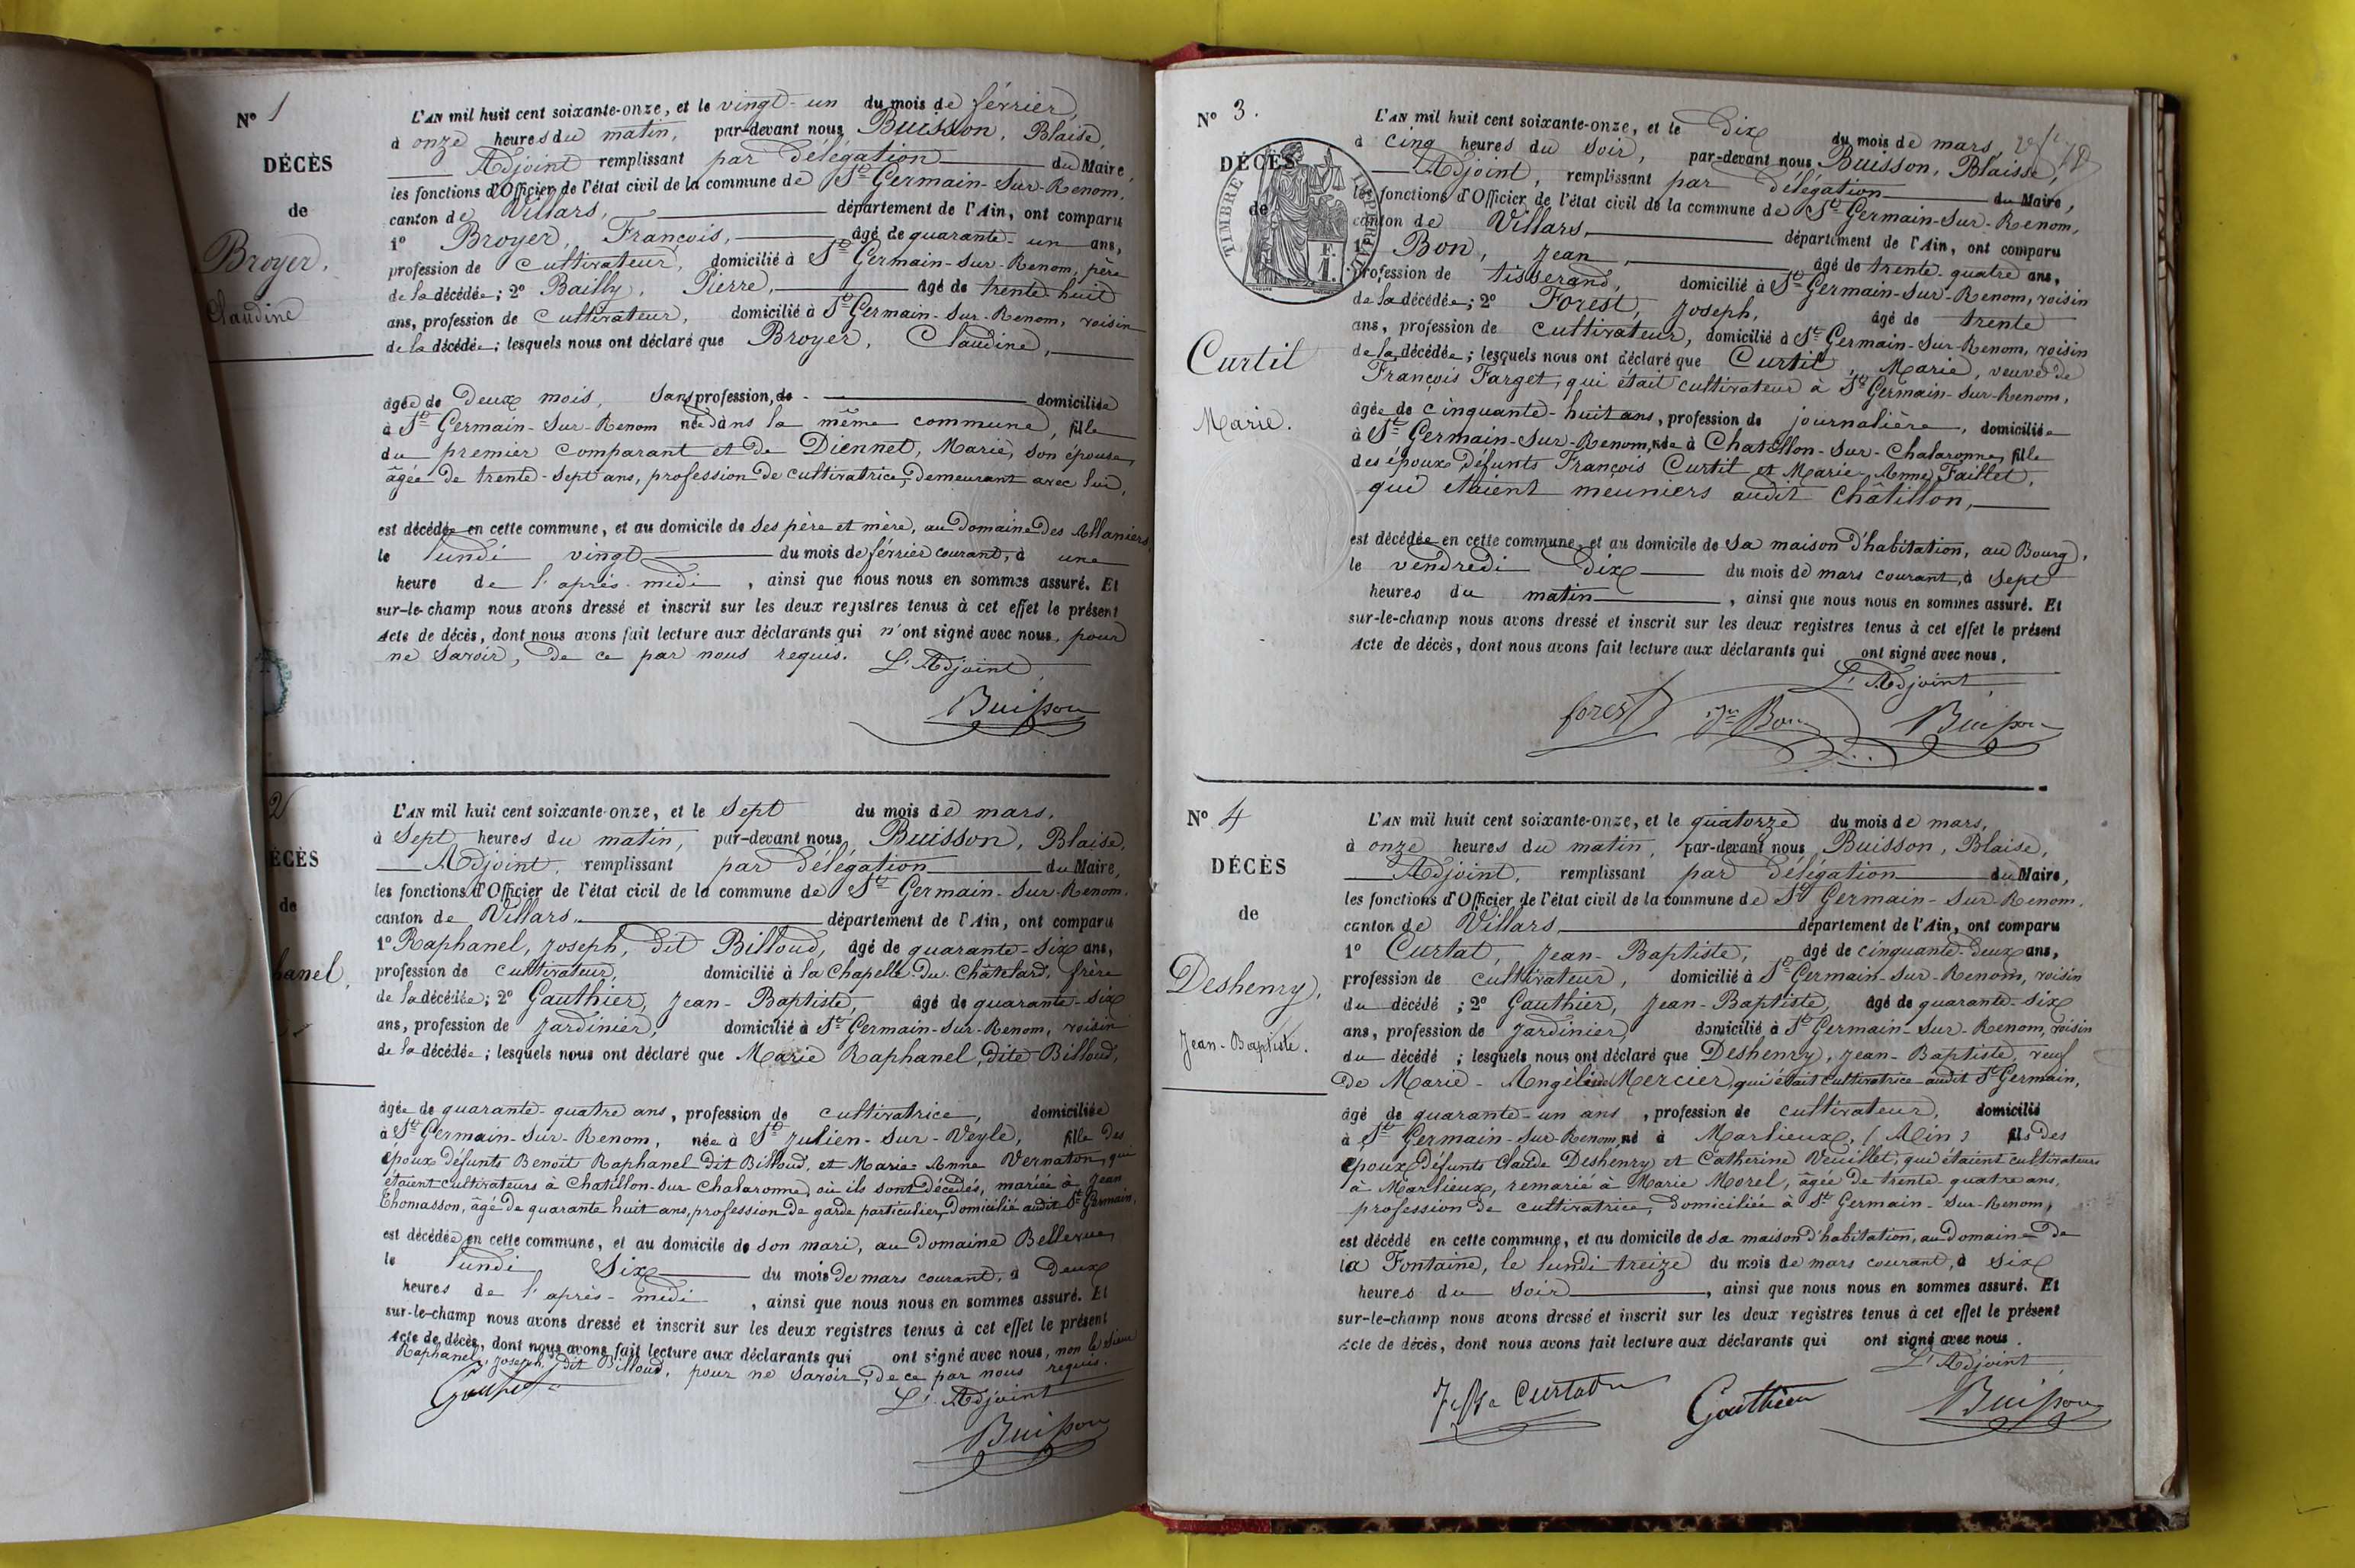 N° 1
DÉCÈS
de
Broyer,
Claudine
L'AN mil huit cent soixante-onze, et le vingt-un du mois de février,
à onze heures du matin, par-devant nous Buisson, Blaise,
Adjoint remplissant par délégation du Maire,
les fonctions d'Officier de l'état civil de la commune de St Germain-sur-Renom,
canton de Villars, département de l'Ain, ont comparu
1° Broyer, François, âgé de quarante-un ans,
profession de cultivateur, domicilié à St Germain-sur-Renom, père
de la décédée; 2° Bailly, Pierre, âgé de trente-huit
ans, profession de cultivateur, domicilié à St Germain-sur-Renom, voisin
de la décédée; lesquels nous ont déclaré que Broyer, Claudine,
âgée de deux mois, sans profession, de domiciliée
à St Germain-sur-Renom née dans la même commune, fille
du premier comparant et de Diennet, Marie, son épouse,
âgée de trente-sept ans, profession de cultivatrice, demeurant avec lui,
est décédée en cette commune, et au domicile de ses père et mère, au domaine des Allaniers
le lundi vingt du mois de février courant, à une
heure de l'après-midi, ainsi que nous nous en sommes assuré. Et
sur-le-champ nous avons dressé et inscrit sur les deux registres tenus à cet effet le présent
Acte de décès, dont nous avons fait lecture aux déclarants qui n'ont signé avec nous, pour
ne savoir, de ce par nous requis. L'Adjoint,
Buisson
2
ÉCÈS
de
hanel,
L'AN mil huit cent soixante-onze, et le sept du mois de mars,
à sept heures du matin, par-devant nous, Buisson, Blaise,
Adjoint, remplissant par délégation du Maire,
les fonctions d'Officier de l'état civil de la commune de St Germain-sur-Renom,
canton de Villars, département de l'Ain, ont comparu
1° Raphanel, Joseph, dit Billoud, âgé de quarante-six ans,
profession de cultivateur, domicilié à la Chapelle-du-Châtelard, frère
de la décédée; 2° Gauthier, Jean-Baptiste, âgé de quarante-six
ans, profession de jardinier, domicilié à St Germain-sur-Renom, voisin
de la décédée; lesquels nous ont déclaré que Marie Raphanel, dite Billoud,
âgée de quarante-quatre ans, profession de cultivatrice, domiciliée
à St Germain-sur-Renom, née à St Julien-sur-Veyle, fille des
époux défunts Benoît Raphanel dit Billoud, et Marie-Anne Vernaton, qui
étaient cultivateurs à Chatillon-sur Chalaronne, où ils sont décédés, mariée à Jean
Thomasson, âgé de quarante huit ans, profession de garde particulier, domicilié audit St Germain,
est décédée en cette commune, et au domicile de son mari, au domaine Bellevue,
le lundi six du mois de mars courant, à deux
heures de l'après-midi, ainsi que nous nous en sommes assuré. Et
sur-le-champ nous avons dressé et inscrit sur les deux registres tenus à cet effet le présent
Acte de décès, dont nous avons fait lecture aux déclarants qui ont signé avec nous, non le sieur
Raphanel, Joseph, dit Billoud, pour ne savoir, de ce par nous requis.
L'Adjoint
Buisson
N° 3.
DÉCÈS
de
TIMBRE
F.
1.
Curtil
Marie.
L'AN mil huit cent soixante-onze, et le dix du mois de mars,
à cinq heures du soir, par-devant nous Buisson, Blaise,
Adjoint, remplissant par délégation du Maire,
les fonctions d'Officier de l'état civil de la commune de St Germain-sur-Renom,
canton de Villars, département de l'Ain, ont comparu
1° Bon, Jean, âgé de trente-quatre ans,
profession de tisserand, domicilié à St Germain-sur-Renom, voisin
de la décédée; 2° Forest, Joseph, âgé de trente
ans, profession de cultivateur, domicilié à St Germain-sur-Renom, voisin
de la décédée; lesquels nous ont déclaré que Curtil, Marie, veuve de
François Farget, qui était cultivateur à St Germain-sur-Renom,
âgée de cinquante-huit ans, profession de journalière, domiciliée
à St Germain-sur-Renom, née à Chatillon-sur-Chalaronne, fille
des époux défunts François Curtil et Marie-Anne Faillet,
qui etaient meuniers audit Châtillon,
est décédée en cette commune, et au domicile de sa maison d'habitation, au Bourg,
le vendredi dix du mois de mars courant, à sept
heures du matin, ainsi que nous nous en sommes assuré. Et
sur-le-champ nous avons dressé et inscrit sur les deux registres tenus à cet effet le présent
Acte de décès, dont nous avons fait lecture aux déclarants qui ont signé avec nous.
L'Adjoint,
forest Jn Bon Buisson
N° 4
DÉCÈS
de
Deshenry,
Jean-Baptiste.
L'AN mil huit cent soixante-onze, et le quatorze du mois de mars,
à onze heures du matin, par-devant nous Buisson, Blaise,
Adjoint, remplissant par délégation du Maire,
les fonctions d'Officier de l'état civil de la commune de St Germain-sur-Renom,
canton de Villars, département de l'Ain, ont comparu
1° Curtat, Jean-Baptiste, âgé de cinquante-deux ans,
profession de cultivateur, domicilié à St Germain-sur-Renom, voisin
du décédé; 2° Gauthier, Jean-Baptiste, âgé de quarante-six
ans, profession de jardinier, domicilié à St Germain-sur-Renom, voisin
du décédé; lesquels nous ont déclaré que Deshenry, Jean-Baptiste, veuf
de Marie-Angéline Mercier, qui était cultivatrice audit St Germain,
âgé de quarante-un ans, profession de cultivateur, domicilié
à St Germain-sur-Renom, né à Marlieux, (Ain) fils des
époux défunts Claude Deshenry et Catherine Veuillet, qui étaient cultivateurs
à Marlieux, remarié à Marie Morel, âgée de trente-quatre ans,
profession de cultivatrice, domiciliée à St Germain-sur-Renom,
est décédé en cette commune, et au domicile de sa maison d'habitation, au domaine de
la Fontaine, le lundi treize du mois de mars courant, à six
heures du soir, ainsi que nous nous en sommes assuré. Et
sur-le-champ nous avons dressé et inscrit sur les deux registres tenus à cet effet le présent
Acte de décès, dont nous avons fait lecture aux déclarants qui ont signé avec nous.
L'Adjoint,
Curtat Gauthier Buisson